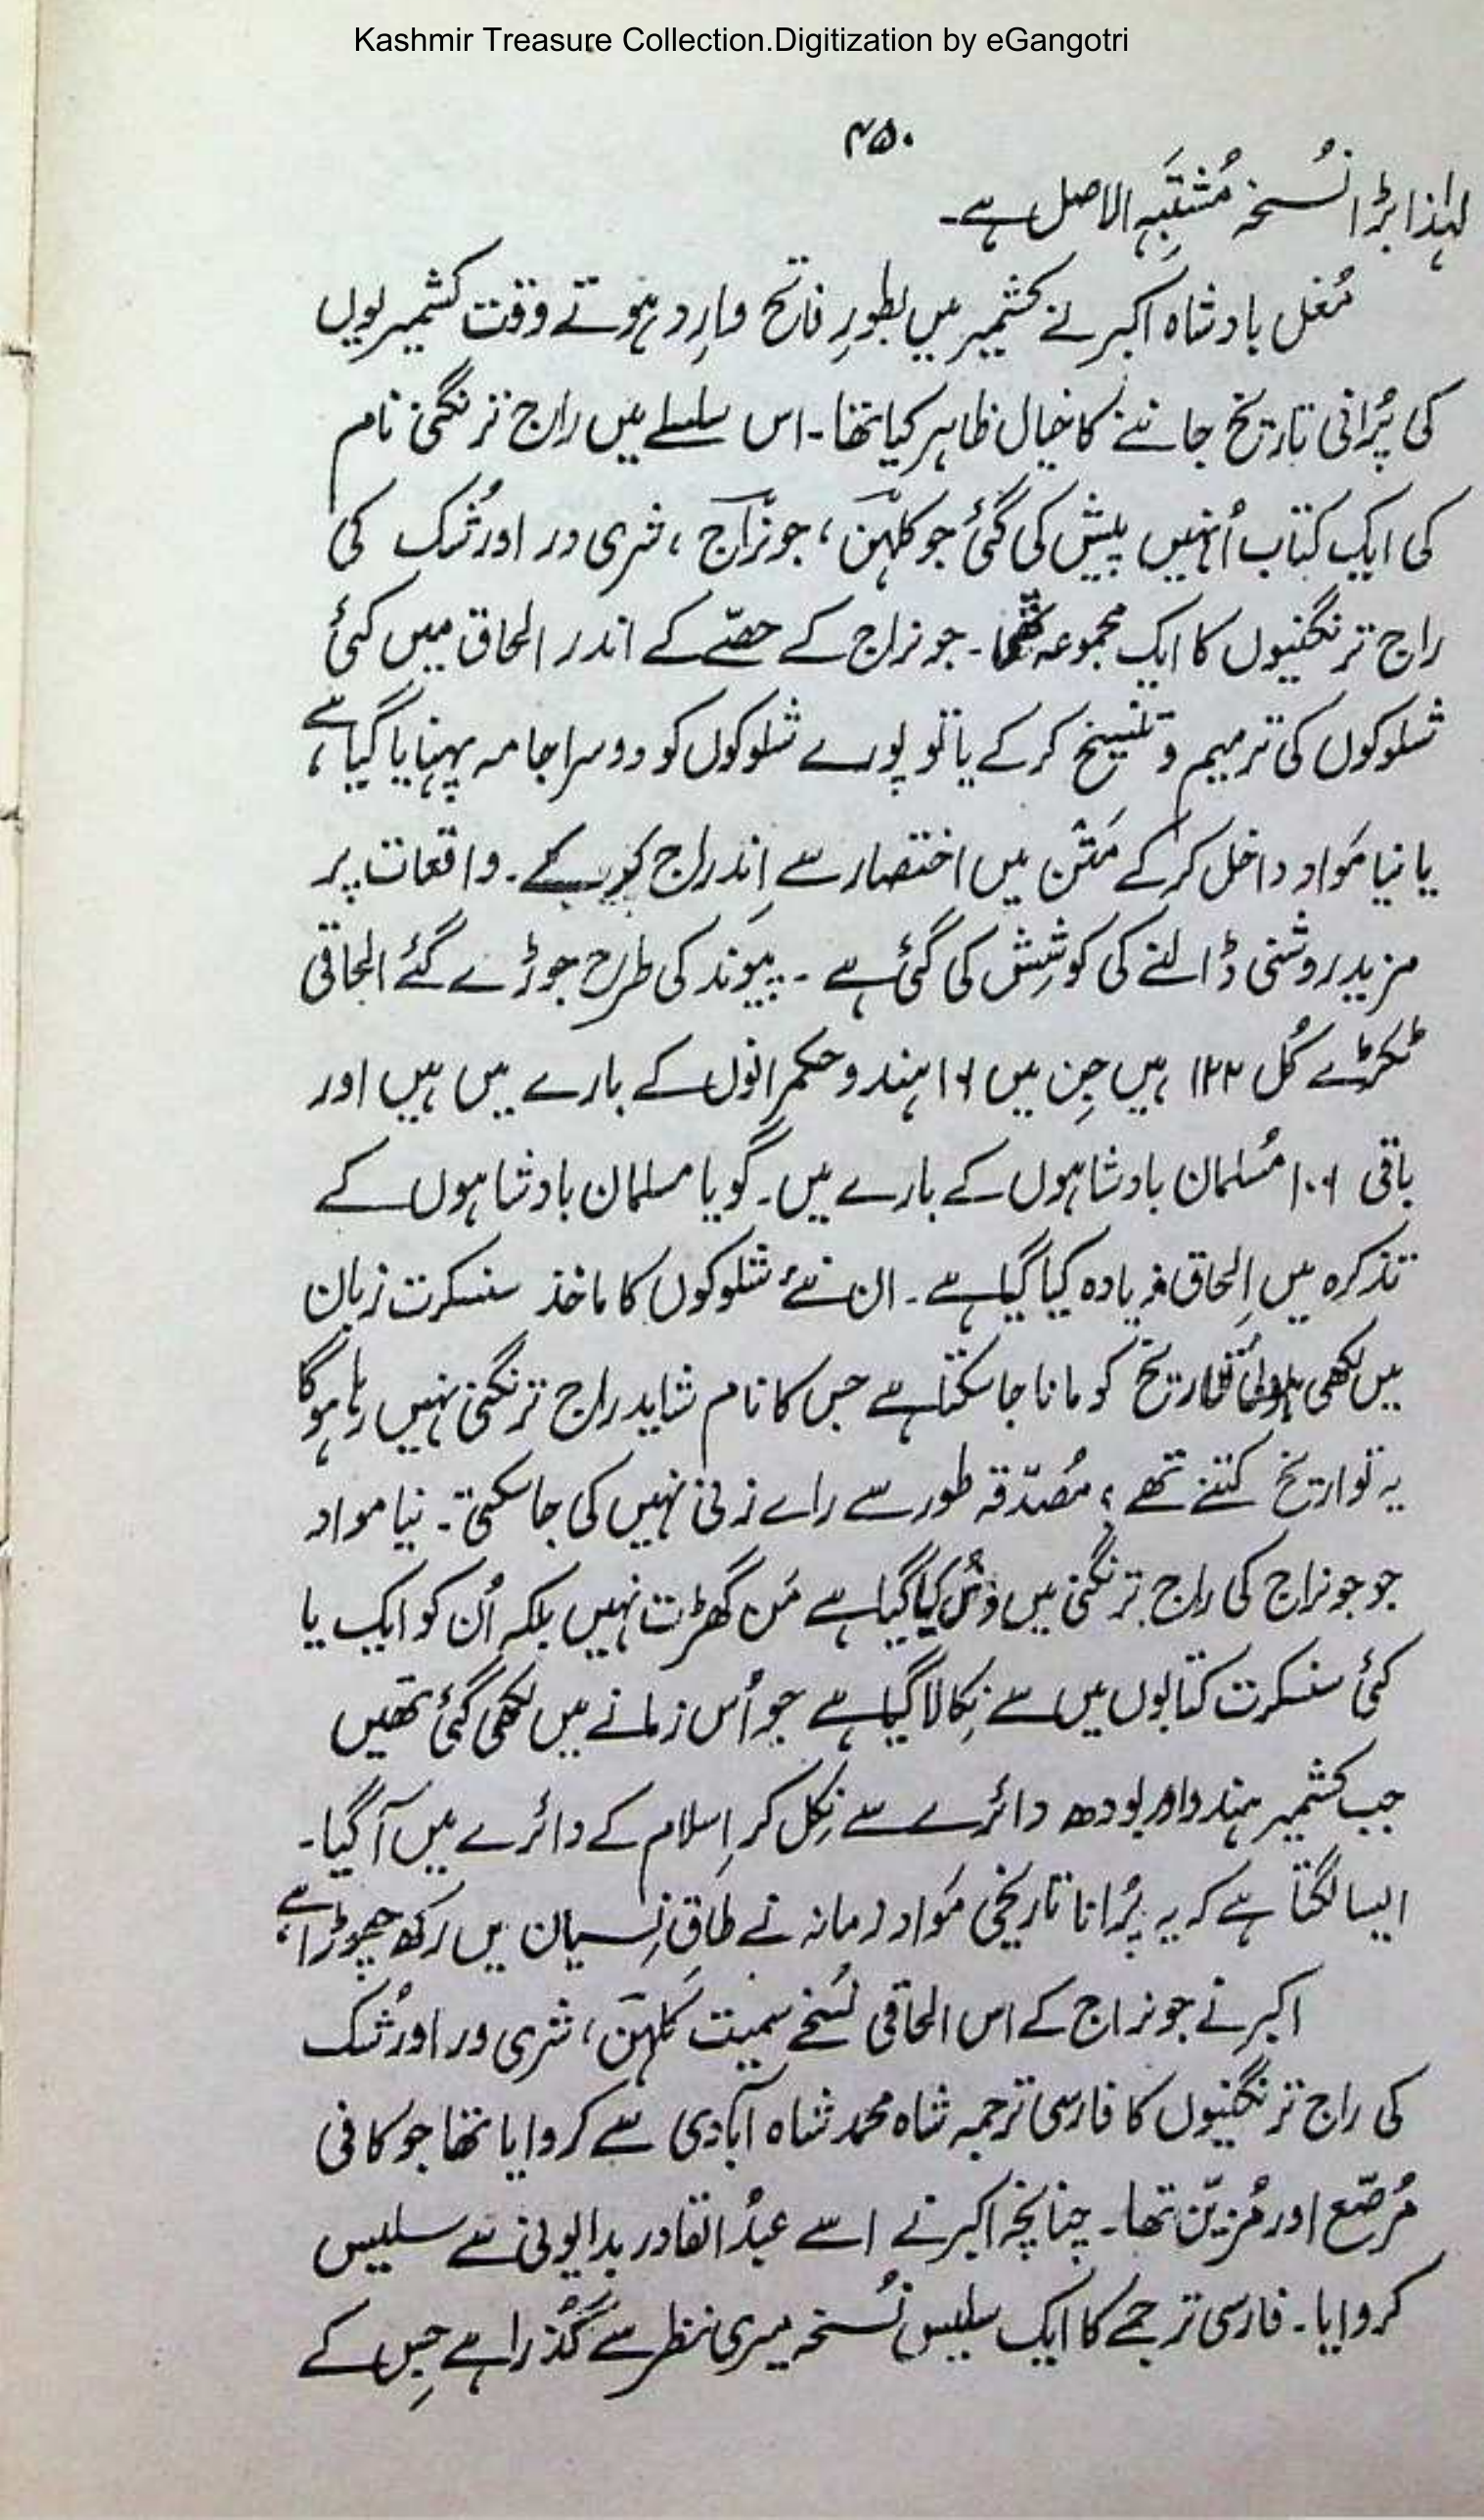 Kashmir Treasure Collection.Digitization by eGangotri
۴۵۰
لہٰذا بڑا نُسخہ مُشتَبِہ الاصل ہے۔
مُغل بادشاہ اکبر نے کشمیر میں بطورِ فاتح وارِد ہوتے وقت کشمیریوں
کی پُرانی تاریخ جاننے کا خیال ظاہر کیا تھا۔ اس سلسلے میں راج ترنگنی نام
کی ایک کتاب اُنہیں پیش کی گئی جو کلہن، جونراج، شری ور اور شُک کی
راج ترنگنیوں کا ایک مجموعہ تھا۔ جونراج کے حصّے کے اندر الحاق میں کئی
شلوکوں کی ترمیم و تنسیخ کر کے یا تو پورے شلوکوں کو دوسرا جامہ پہنایا گیا ہے،
یا نیا مَواد داخل کر کے مَتن میں اختصار سے اِندراج کر کے۔ واقعات پر
مزید روشنی ڈالنے کی کوشِش کی گئی ہے۔ پیوَند کی طرح جوڑے گئے الحاقی
ٹکڑے کُل ۱۲۲ ہیں جِن میں ۱۶ ہندو حکمرانوں کے بارے میں ہیں اور
باقی ۱۰۶ مُسلمان بادشاہوں کے بارے میں۔ گویا مسلمان بادشاہوں کے
تذکرہ میں اِلحاق زیادہ کیا گیا ہے۔ ان نئے شلوکوں کا ماخذ سنسکرت زبان
میں لکھی ہوئی تاریخ کو مانا جا سکتا ہے جس کا نام شاید راج ترنگنی نہیں رہا ہو گا
یہ تواریخ کتنے تھے؛ مُصدّقہ طور سے رائے زنی نہیں کی جا سکتی۔ نیا مواد
جو جونراج کی راج ترنگنی میں کیا گیا ہے مَن گھڑت نہیں بلکہ اُن کو ایک یا
کئی سنسکرت کتابوں میں سے نِکالا گیا ہے جو اُس زمانے میں لکھی گئی تھیں
جب کشمیر ہندو اور بودھ دائرے سے نِکل کر اِسلام کے دائرے میں آ گیا۔
ایسا لگتا ہے کہ یہ پُرانا تاریخی مَواد زمانہ نے طاقِ نِسیان میں رکھ چھوڑا ہے،
اکبر نے جونراج کے اس الحاقی نُسخے سمیت کَلہن، شری ور اور شُک
کی راج ترنگنیوں کا فارسی ترجمہ شاہ محمد شاہ آبادی سے کروایا تھا جو کافی
مُرصّع اور مُزیّن تھا۔ چنانچہ اکبر نے اسے عبدُ القادر بدایونی سے سلیس
کروایا۔ فارسی ترجمے کا ایک سلیس نُسخہ میری نظر سے گُذرا ہے جِس کے